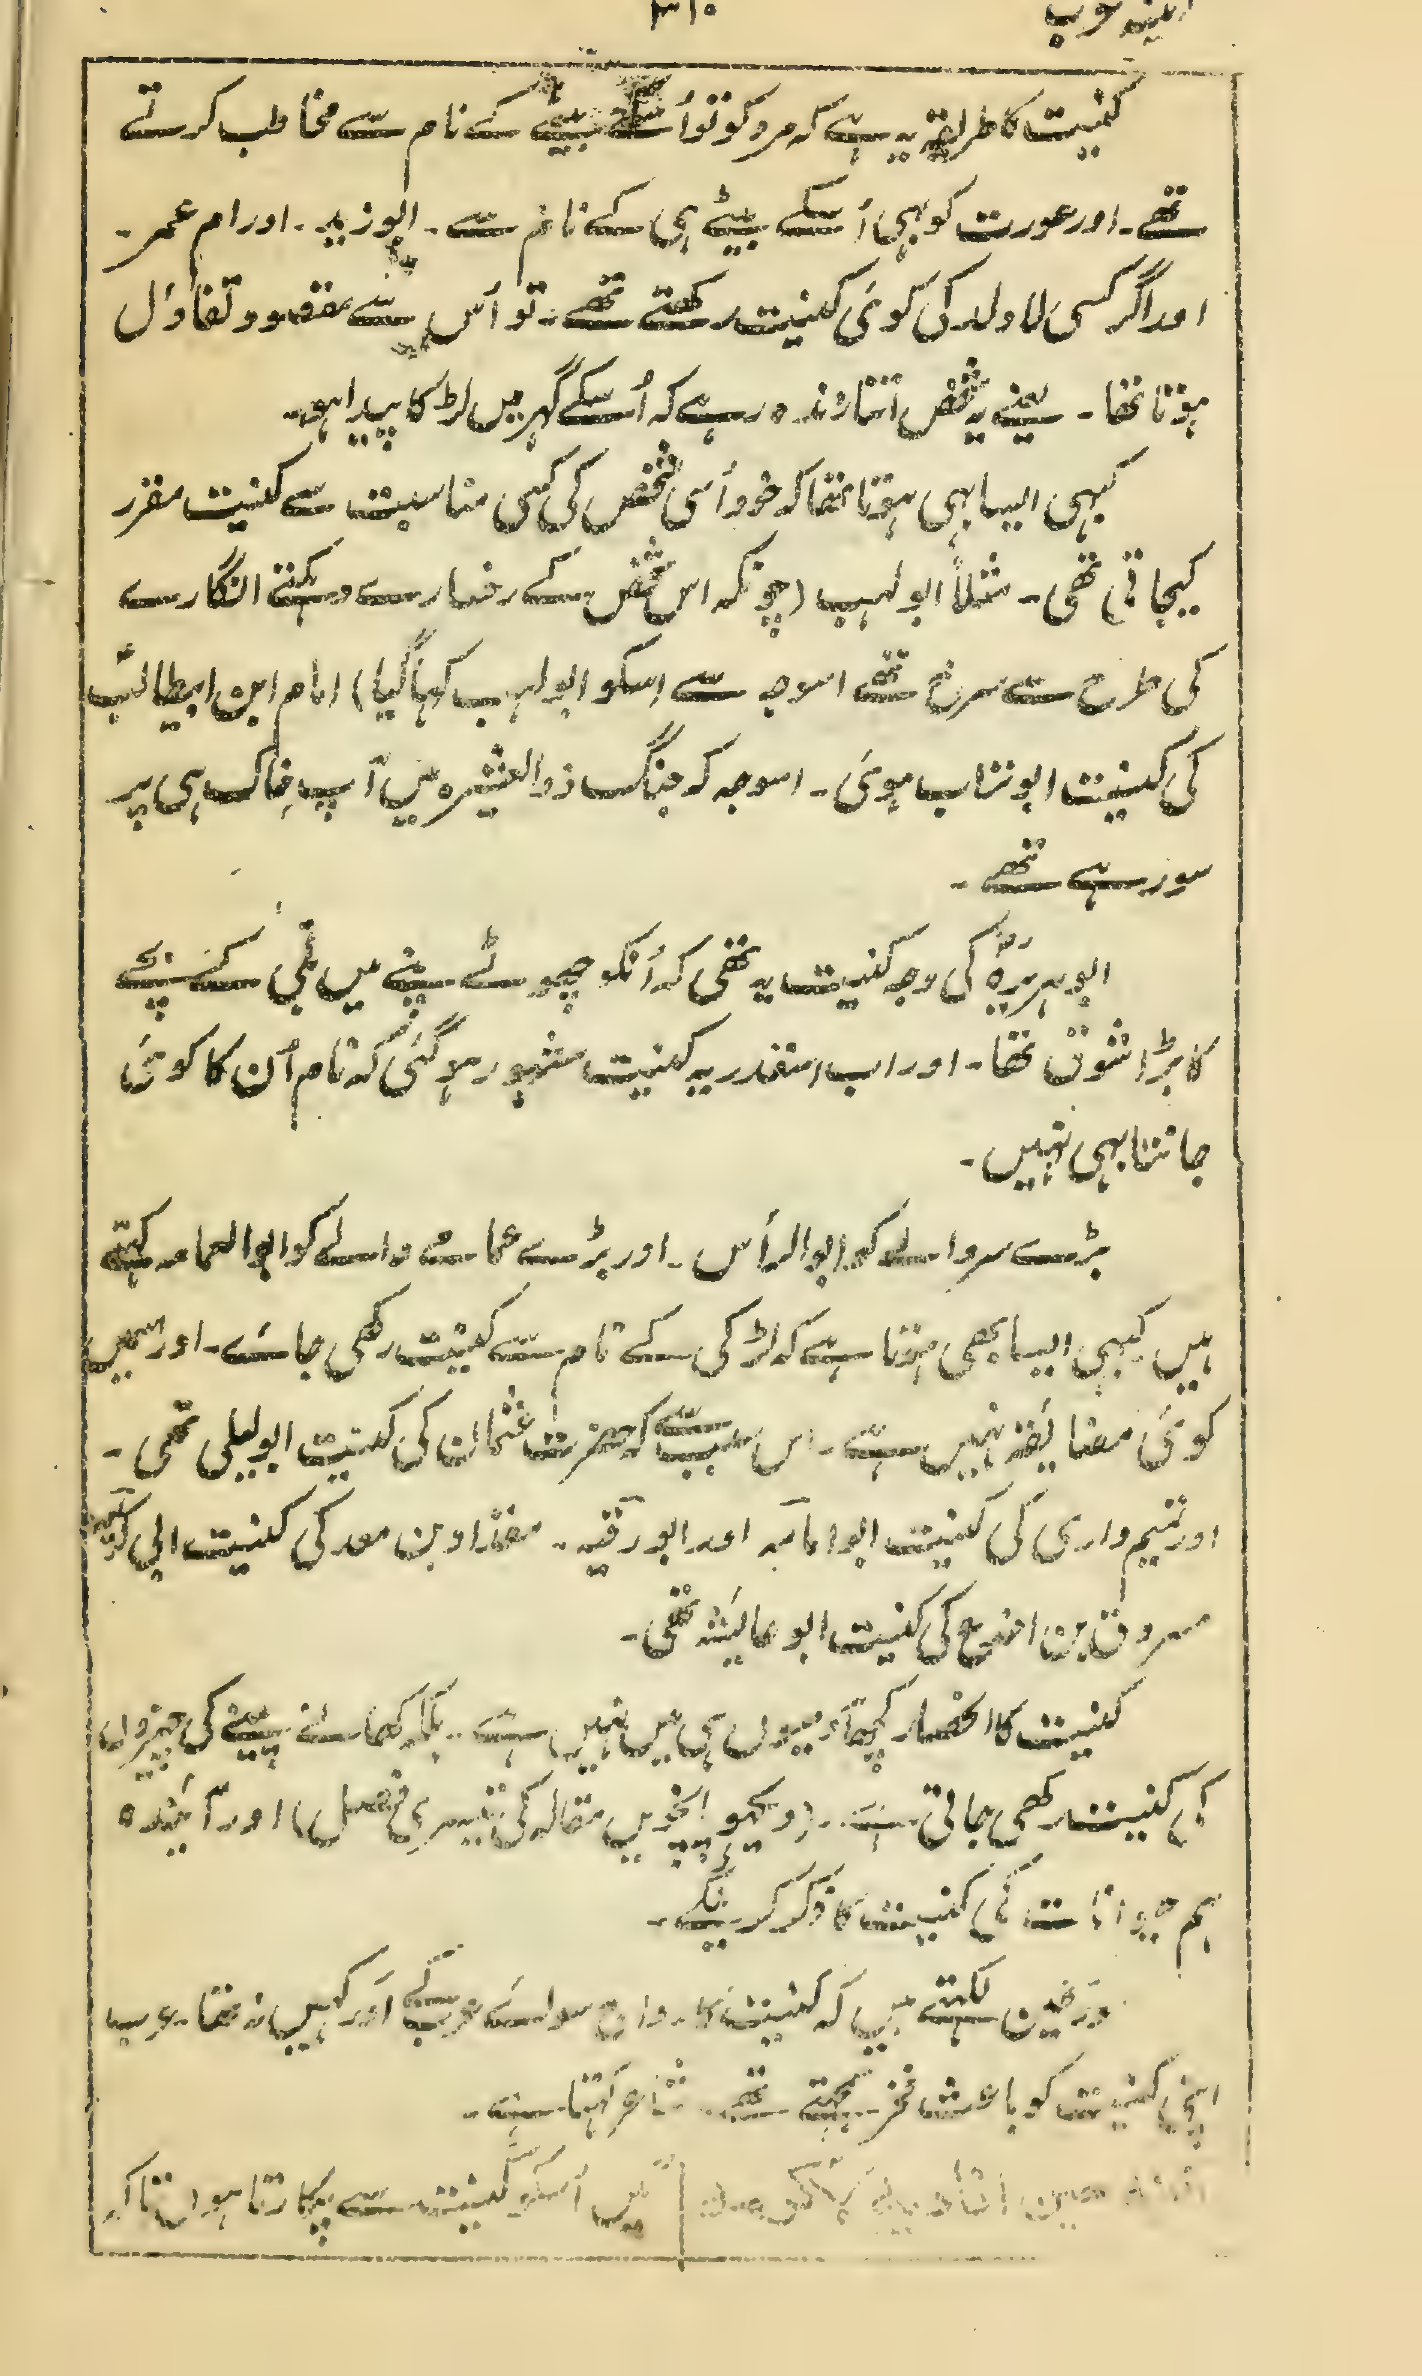 ۳۱۰
کنیت کا طریقہ یہ ہے کہ مرد کو تو اُسکے بیٹے کے نام سے مخاطب کرتے
تھے۔ اور عورت کو بہی اُسکے بیٹے ہی کے نام سے۔ ابوزید۔ اور ام عمر۔
اور اگر کسی لا ولد کی کوئی کنیت رکھتے تھے۔ تو اُس سے مقصود تفاؤل
ہوتا تھا۔ یعنے یہ شخص اتنا زندہ رہے کہ اُسکے گہر میں لڑکا پیدا ہو۔
کبہی ایسا بہی ہوتا تھا کہ خود اُسی شخص کی کسی مناسبت سے کنیت مقرر
کیجاتی تھی۔ مثلاً ابولہب (چونکہ اس شخص کے رخسارے دہکتے انگارے
کی طرح سے سرخ تھے اسوجہ سے اِسکو ابولہب کہا گیا) امام ابن ابیطالبؑ
کی کنیت ابوتراب ہوئی۔ اسوجہ کہ جنگ ذوالعشیرہ میں آپ خاک ہی پر
سو رہے تھے۔
ابوہریرہؓ کی وجہ کنیت یہ تھی کہ اُنکو چھوٹے پنے میں بلّی کے بچے
کا بڑا شوق تھا۔ اور اب اسقدر یہ کنیت مشہور ہوگئی کہ نام اُن کا کوئی
جانتا بہی نہیں۔
بڑے سر والے کو ابوالرأس۔ اور بڑے عمامے والے کو ابوالعمامہ کہتے
ہیں کبہی ایسا بھی ہوتا ہے کہ لڑکی کے نام سے کنیت رکھی جائے۔ اور اسمیں
کوئی مضایقہ نہیں ہے۔ اس سبب سے کہ حضرت عثمان کی کنیت ابولیلی تھی۔
اور تمیم داری کی کنیت ابوامامہ اور ابورقیہ۔ مقداد بن معد کی کنیت ابی کریمہ
مسروق بن اجدع کی کنیت ابوعایشہ تھی۔
کنیت کا انحصار کچھ آدمیوں ہی میں نہیں ہے۔ بلکہ کھانے پینے کی چیزوں
کی کنیت رکھی جاتی ہے۔ (دیکھو پانچویں مقالہ کی تیسری فصل) اور آیندہ
ہم حیوانات کی کنیت کا ذکر کرینگے۔
مورخین لکہتے ہیں کہ کنیت کا رواج سوائے عرب کے اور کہیں نہ تھا۔ عرب
اپنی کنیت کو باعث فخر سمجہتے تھے۔ شاعر کہتا ہے۔
میں اُسکو کنیت سے پکارتا ہوں تاکہ